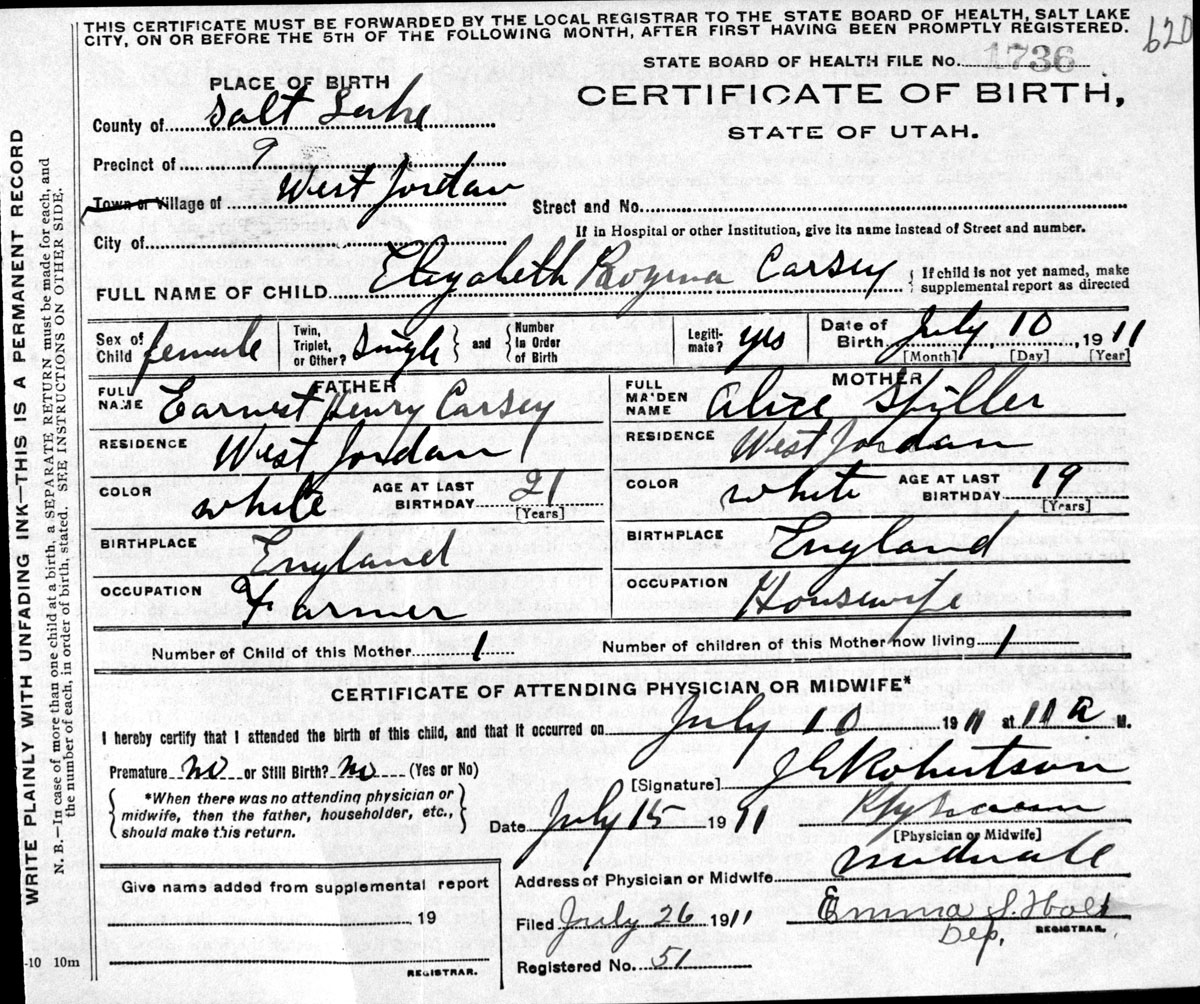 THIS CERTIFICATE MUST BE FORWARDED BY THE LOCAL REGISTRAR TO THE STATE BOARD OF HEALTH, SALT LAKE
CITY, ON OR BEFORE THE 5TH OF THE FOLLOWING MONTH, AFTER FIRST HAVING BEEN PROMPTLY REGISTERED.
620
STATE BOARD OF HEALTH FILE No. 1736
CERTIFICATE OF BIRTH,
STATE OF UTAH.
PLACE OF BIRTH
County of Salt Lake
Precinct of 9
Town or Village of West Jordan
Street and No.
If in Hospital or other Institution, give its name instead of Street and number.
City of
FULL NAME OF CHILD Elizabeth Carsey
{ If child is not yet named, make
supplemental report as directed
Sex of Child female
Twin, Triplet, or Other? single } and { Number in Order of Birth
Legiti-mate? yes
Date of Birth July 10, 1911
[Month] [Day] [Year]
FATHER
FULL NAME Earnest Henry Carsey
RESIDENCE West Jordan
COLOR white AGE AT LAST BIRTHDAY 21
[Years]
BIRTHPLACE England
OCCUPATION Farmer
MOTHER
FULL MAIDEN NAME Alice Spiller
RESIDENCE West Jordan
COLOR white AGE AT LAST BIRTHDAY 19
[Years]
BIRTHPLACE England
OCCUPATION Housewife
Number of Child of this Mother 1 Number of children of this Mother now living 1
CERTIFICATE OF ATTENDING PHYSICIAN OR MIDWIFE*
I hereby certify that I attended the birth of this child, and that it occurred on July 10 1911 at 11 a M.
Premature no or Still Birth? no (Yes or No)
*When there was no attending physician or
midwife, then the father, householder, etc.,
should make this return.
[Signature] J Robertson
Date July 15 1911 Physician
[Physician or Midwife]
Address of Physician or Midwife Midvale
Filed July 26 1911 Emma S. Holt
Dep. REGISTRAR.
Registered No. 51
Give name added from supplemental report
19
REGISTRAR.
-10 10m
WRITE PLAINLY WITH UNFADING INK—THIS IS A PERMANENT RECORD
N. B.—In case of more than one child at a birth, a SEPARATE RETURN must be made for each, and
the number of each, in order of birth, stated. SEE INSTRUCTIONS ON OTHER SIDE.